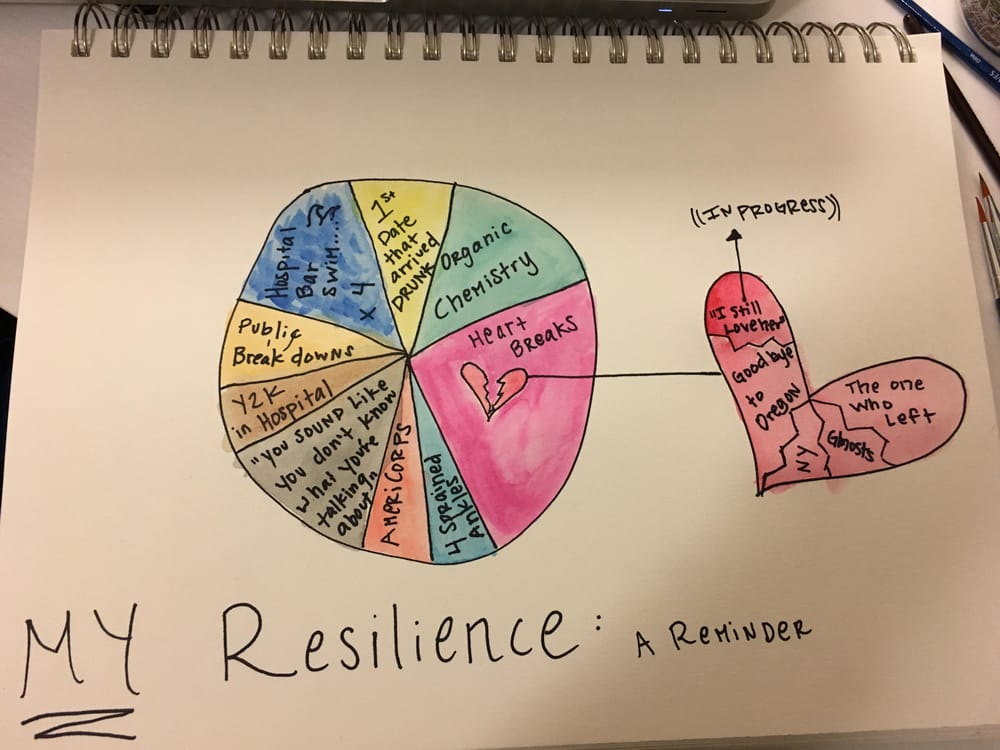 Hospital
Bar
Swim....
x 4
1st
Date
that
arrived
DRUNK
Organic
Chemistry
Heart
Breaks
4 Sprained
Ankles
AMERICORPS
"YOU SOUND LIKE
YOU don't know
what you're
talking
about"
Y2K
in Hospital
Public
Break downs
((IN PROGRESS))
"I still
Love her"
Goodbye
to
Oregon
NY
Ghosts
The one
who
Left
MY Resilience: A REMINDER